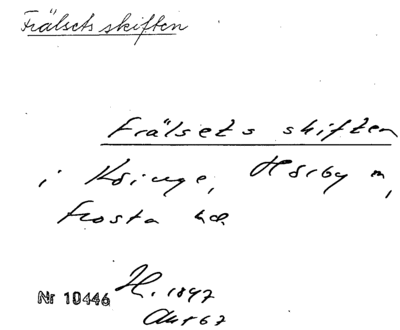 Frälsets skiften
Frälsets skiften
i Köinge, Hörby m,
Frosta hd.
Nr 10446 H. 1847
Akt 67